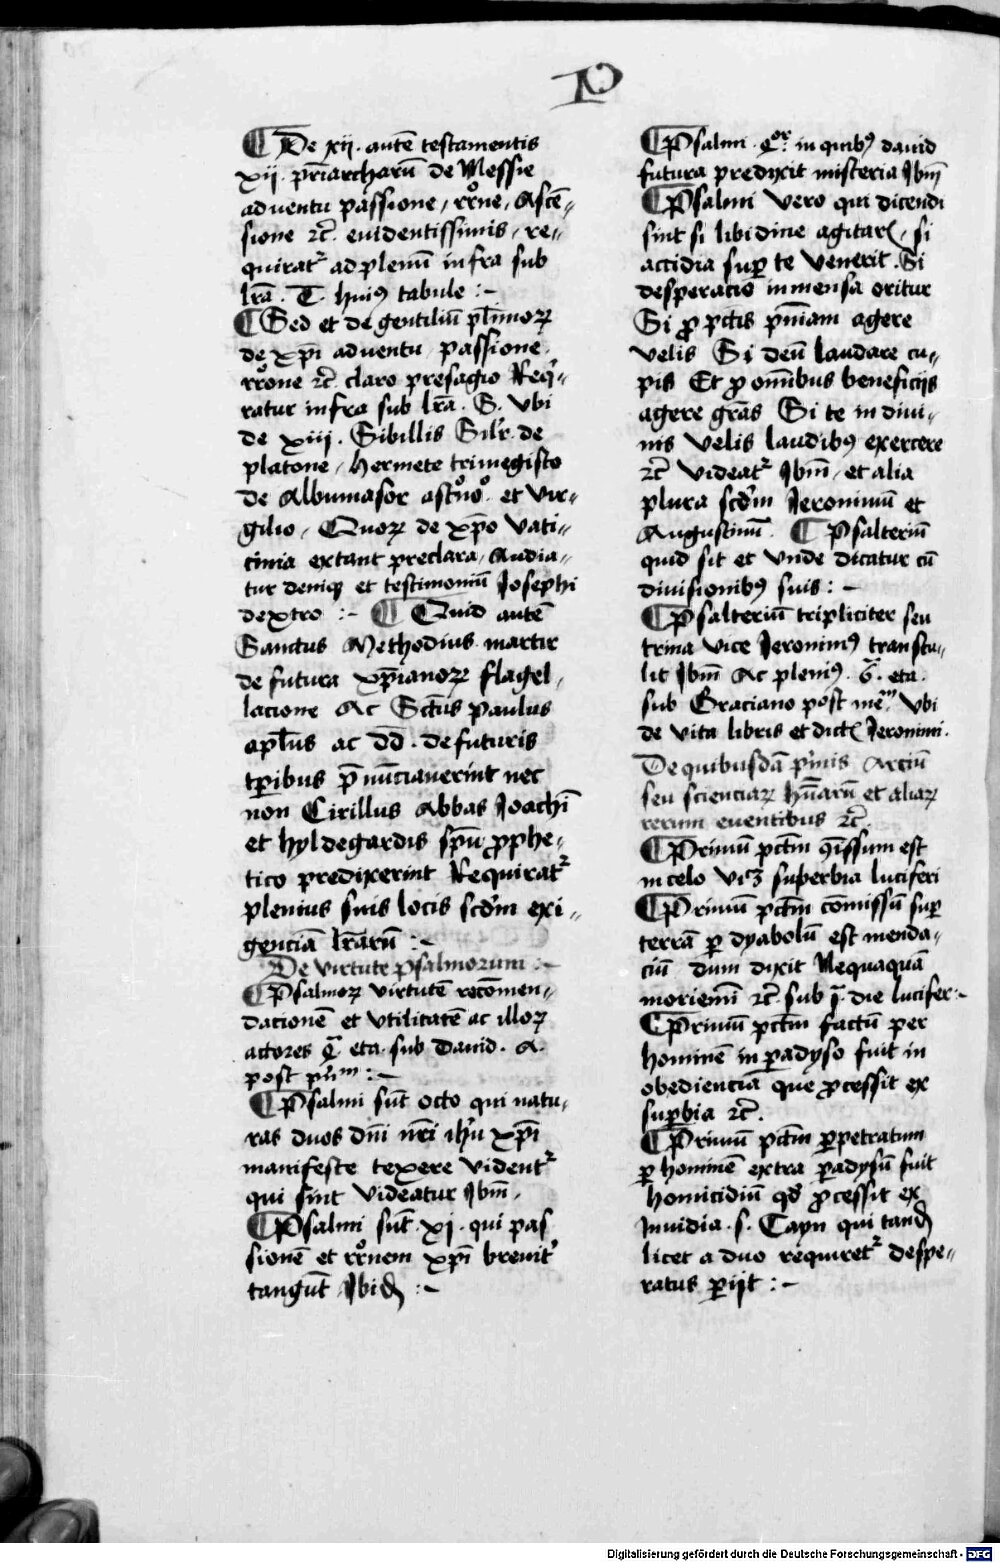 P
¶ De xij. autē testamentis
xij. pr̄iarcharū de Messie
aduentu passione, rr̄one, Ascē-
sione ⁊c̄. euidentissimis, re-
quirat᷑ ad plenū infra sub
lr̄a. T. huiꝰ tabule :-
¶ Sed et de gentiliū pl̄imoꝝ
de xp̄i aduentu passione.
rr̄one ⁊c̄. claro presagio Req̄-
ratur infra sub lr̄a. S. vbi
de xiij. Sibillis Silr̄. de
platone, hermete trimegisto
de Albumasor astr̄no. et Vir-
gilio, Quoꝝ de xp̄o vati-
cinia extant preclara, Audia-
tur deniqꝫ et testimoniū Josephi
dextro :- ¶ Quid autē
Sanctus Methodius martir
de futura xp̄ianoꝝ flagel-
lacione Ac Sc̄tūs Paulus
apl̄us ac dd̄. de futuris
tp̄ribus p̄nūnciauerint nec
non Cirillus Abbas Joachī
et hyldegardis sp̄ū ꝓphe-
tico predixerint Requirat᷑
plenius suis locis scd̄m exi-
genciā lr̄arū :-
De virtute psalmorum :-
¶ Psalmoꝝ virtutē recōmen-
dacionē et vtilitatē ac illoꝝ
actores q̄. eta. sub Dauid. A.
post pn̄ᵐ :-
¶ Psalmi sūt octo qui natu-
ras duos dn̄i nr̄i ihū xp̄i
manifeste texere vident᷑
qui sint Videatur Jbm̄.
¶ Psalmi sūt. xj. qui pas
sionē et rr̄onem xp̄i breuit᷑
tangūt, Jbid̄ :-
¶ Psalmi. qᵒʳ. in quibꝰ dauid
futura predixit misteria Jbm̄
¶ Psalmi vero qui dicendi
sint si libidine agitar̄, si
accidia suꝑ te venerit. Si
desperacio inmensa oritur
Si ꝓ pctīs pn̄iam agere
velis Si deū laudare cu-
pis Et ꝓ omībus beneficijs
agere grās Si te in diui-
nis velis laudibꝰ exercere
⁊c̄ videat᷑ Jbm̄, et alia
plura scd̄m Jeronimū et
Augustinū. ¶ Psalteriū
quid sit et vnde dicatur cū
diuisionibꝰ suis :-
¶ Psalteriū tripliciter seu
trina vice Jeronimꝰ transtu-
lit Jbm̄ Ac pleniꝰ. 6ᵃ. eta.
sub Graciano post meᵐ. vbi
de vita libris et dict̄ Jeronimi.
De quibusdā p̄mis Arciū
seu scienciaꝝ hūarū et aliaꝝ
rerum euentibus ⁊c̄
¶ Primū pctm̄ ꝯmīssum est
in celo vꝫ superbia luciferi
¶ Primū pctm̄ cōmissū suꝑ
terrā ꝑ dyabolū est menda-
ciū dum dixit Nequaquā
moriemī ⁊c̄. sub q̄. die lucifer :-
¶ Primū pctm̄ factū per
hominē in ꝑadyso fuit in
obedienciā que ꝓcessit ex
suꝑbia ⁊c̄.
¶ Primū pctm̄ ꝑpetratum
ꝑ hominē extra ꝑadysū fuit
homicidiū qd̄ ꝓcessit ex
Inuidia. s. Cayn qui tand̄
licet a duo requiret᷑ despe-
ratus ꝑijt :-
Digitalisierung gefördert durch die Deutsche Forschungsgemeinschaft - DFG